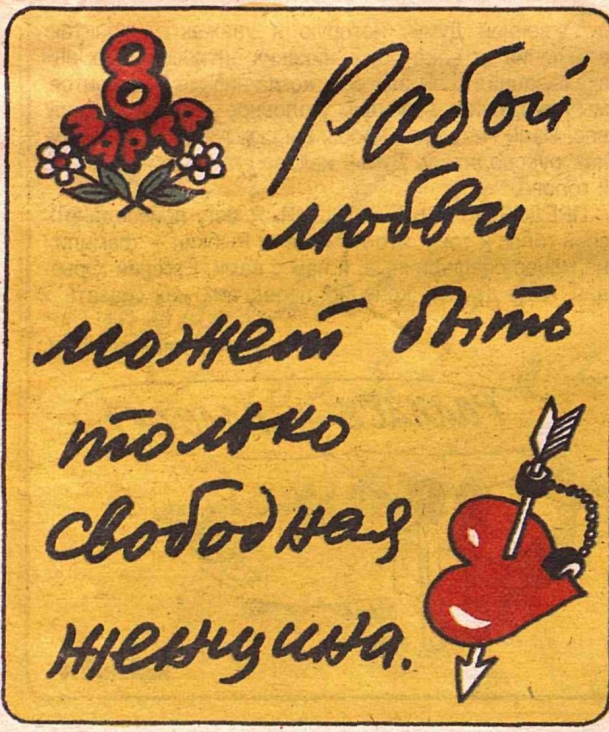 8
МАРТА
Рабой
любви
может быть
только
свободная
женщина.